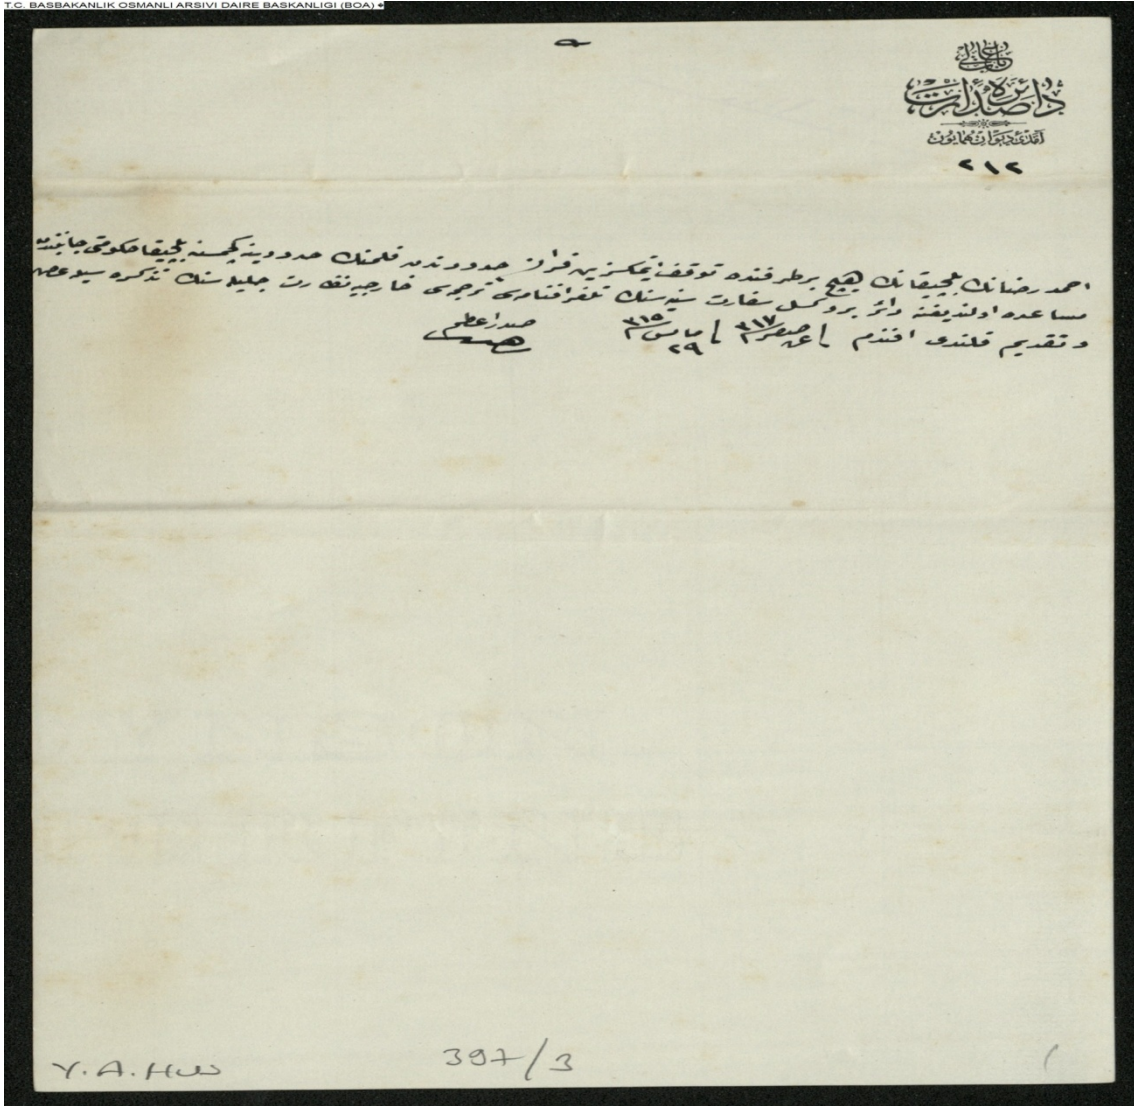 T.C. BASBAKANLIK OSMANLI ARSIVI DAIRE BASKANLIGI (BOA)
باب عالی
دائره صدارت
آمدئ ديوان همايون
٢١٢
احمد رضانك بلچيقانك هيچ بر طرفنده توقف ايتمكسزين فرانسز حدودندن فلمنك حدودينه كچمسنه بلچيقا حكومتى جانبندن
مساعده اولنديغنه دائر بروكسل سفارت سنيه سنك تلغرافنامه سى ترجمه سى خارجيه نظارت جليله سنك تذكره سيله عرض
و تقديم قلندى افندم ٣١٧ صفر مايس ٣١٥ ٢٩
صدر اعظم
Y.A.Hus 397/3